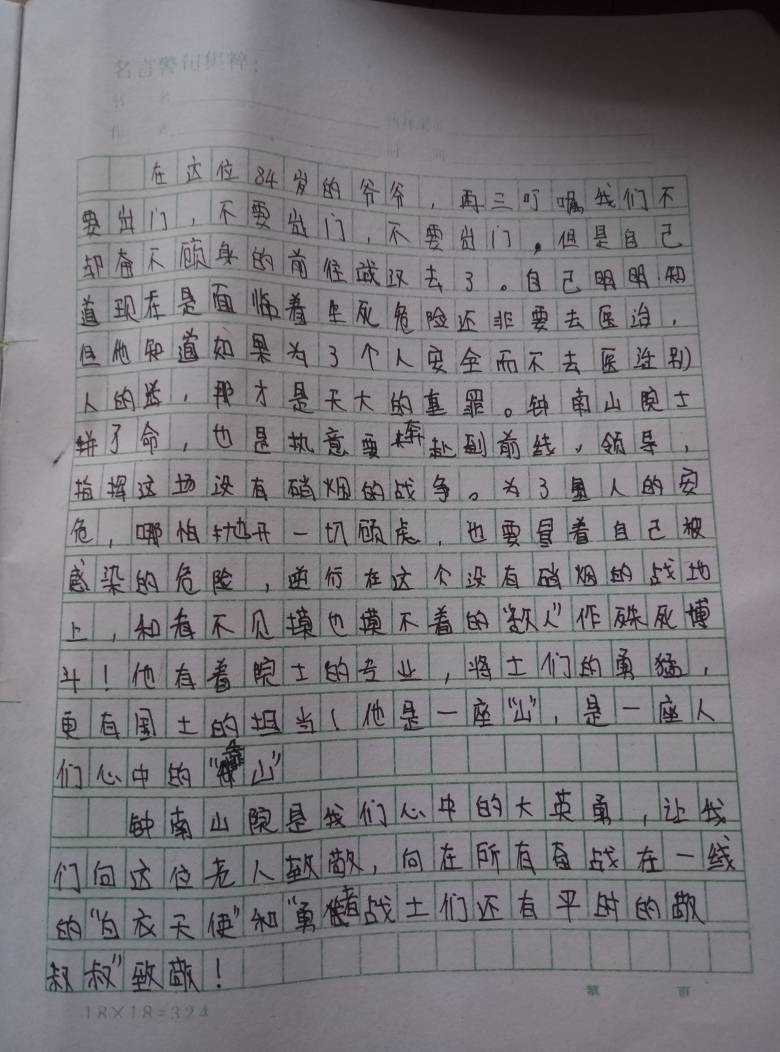 名言警句集粹：
在这位84岁的爷爷，再三叮嘱我们不
要出门，不要出门，不要出门。但是自己
却奋不顾身的前往武汉去了。自己明明知
道现在是面临着生死危险还非要去医治，
但他知道如果为了个人安全而不去医治别
人的送，那才是天大的事罪。钟南山院士
拼了命，也是执意要奔赴到前线，领导，
指挥这场没有硝烟的战争。为了量人的安
危，哪怕抛开一切顾虑，也要冒着自己被
感染的危险，逆行在这个没有硝烟的战地
上，和看不见摸也摸不着的“敌人”作殊死博
斗！他有着院士的专业，将士们的勇猛，
更有国士的担当！他是一座“山”，是一座人
们心中的“靠山”
钟南山院是我们心中的大英勇，让我
们向这位老人致敬，向在所有奋战在一线
的“白衣天使”和“勇者战士们还有平时的敬
叔叔”致敬！
18×18=324
第 页